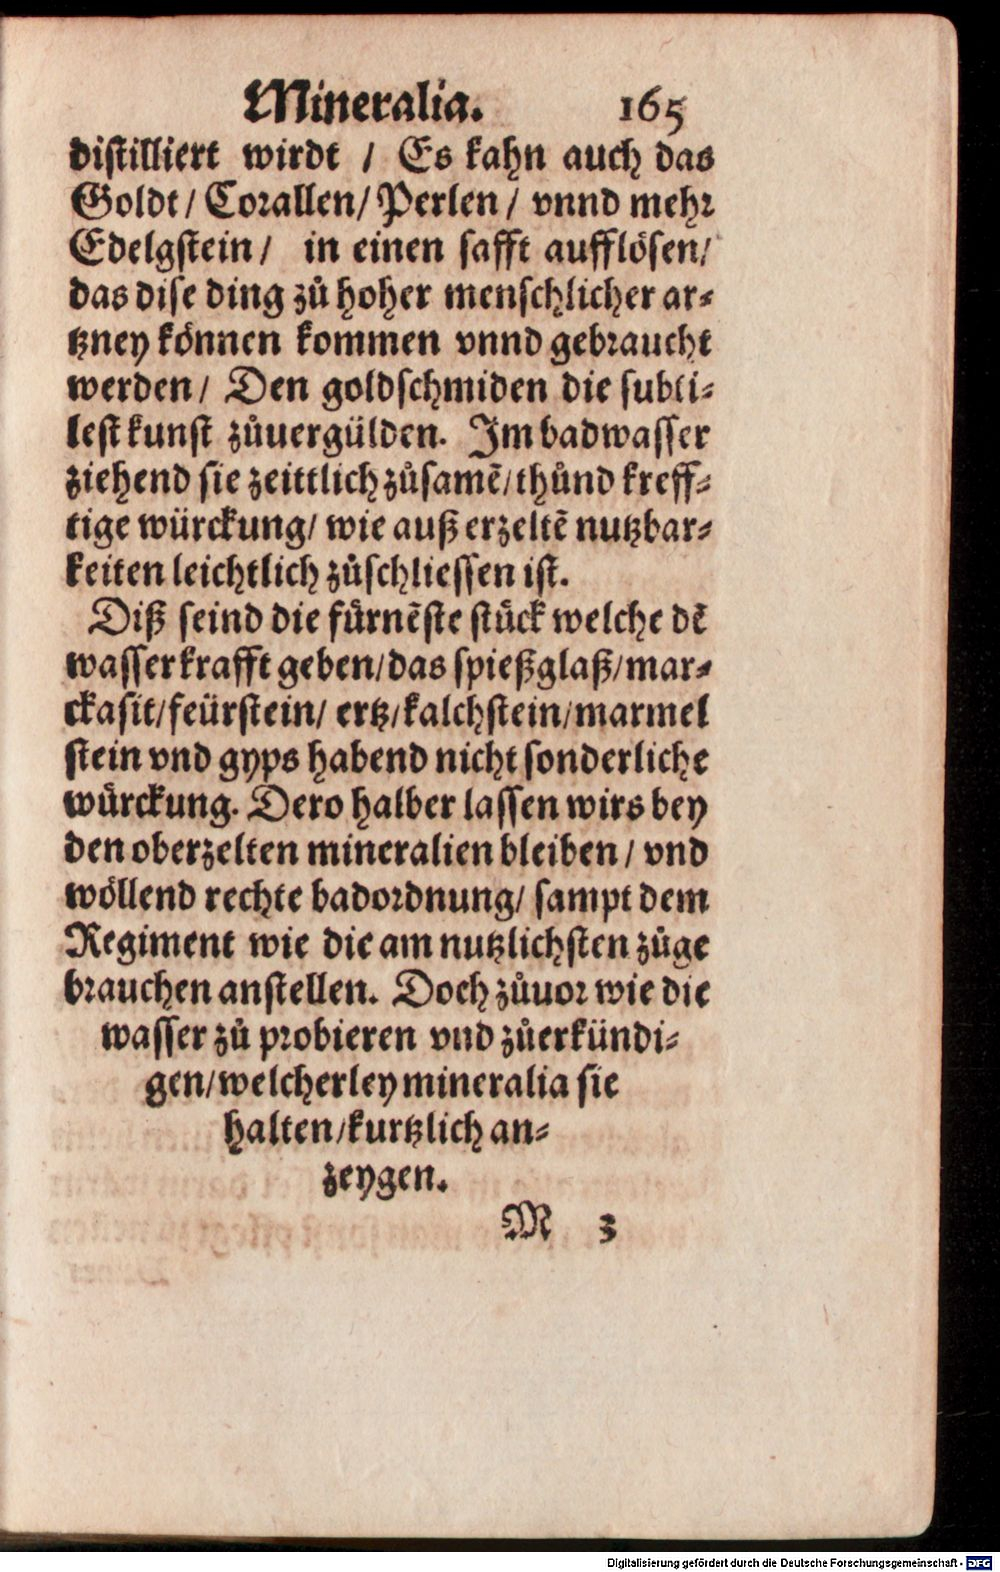 Mineralia. 165
distilliert wirdt / Es kahn auch das
Goldt / Corallen / Perlen / vnnd mehr
Edelgstein / in einen safft aufflösen /
das dise ding zů hoher menschlicher ar⸗
tzney können kommen vnnd gebraucht
werden / Den goldschmiden die subti⸗
lest kunst zůuergülden. Im badwasser
ziehend sie zeittlich zůsamẽ / thůnd kreff⸗
tige würckung / wie auß erzeltẽ nutzbar⸗
keiten leichtlich zůschliessen ist.
Diß seind die fürnẽste stück welche dẽ
wasser krafft geben / das spießglaß / mar⸗
ckasit / feürstein / ertz / kalchstein / marmel
stein vnd gyps habend nicht sonderliche
würckung. Dero halber lassen wirs bey
den oberzelten mineralien bleiben / vnd
wöllend rechte badordnung / sampt dem
Regiment wie die am nutzlichsten zůge
brauchen anstellen. Doch zůuor wie die
wasser zů probieren vnd zůerkündi⸗
gen / welcherley mineralia sie
halten / kurtzlich an⸗
zeygen.
M 3
Digitalisierung gefördert durch die Deutsche Forschungsgemeinschaft - DFG